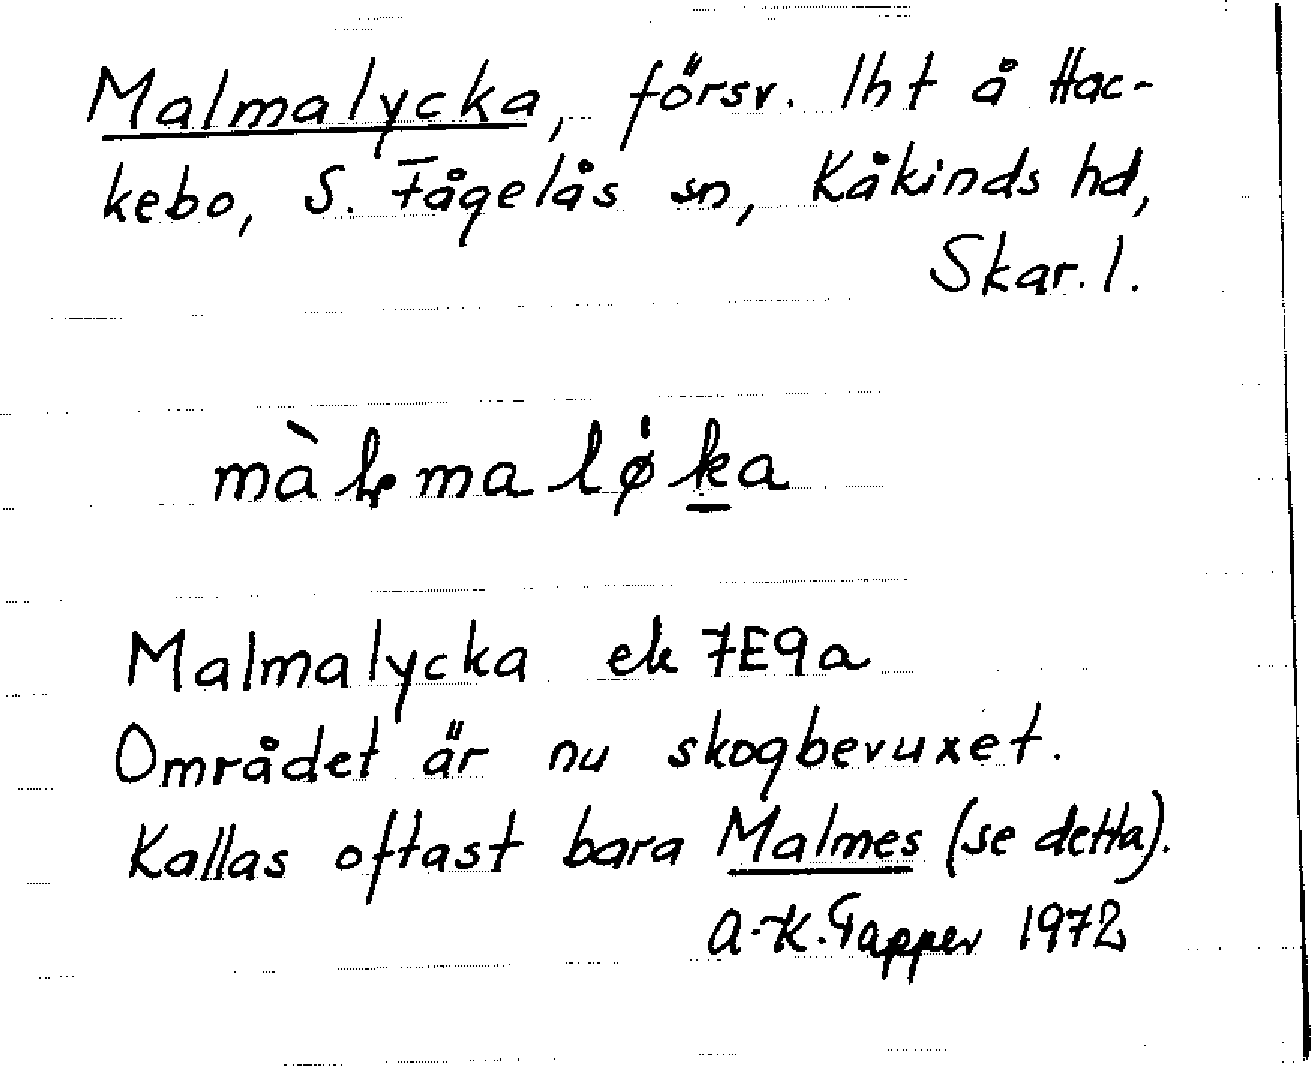 Malmalycka, försv. lht å Hac-
kebo, S. Fågelås sn, Kåkinds hd,
Skar. l.
màlmaløka
Malmalycka ek 7E9a
Området är nu skogbevuxet.
Kallas oftast bara Malmes (se detta).
A-K. Tapper 1972